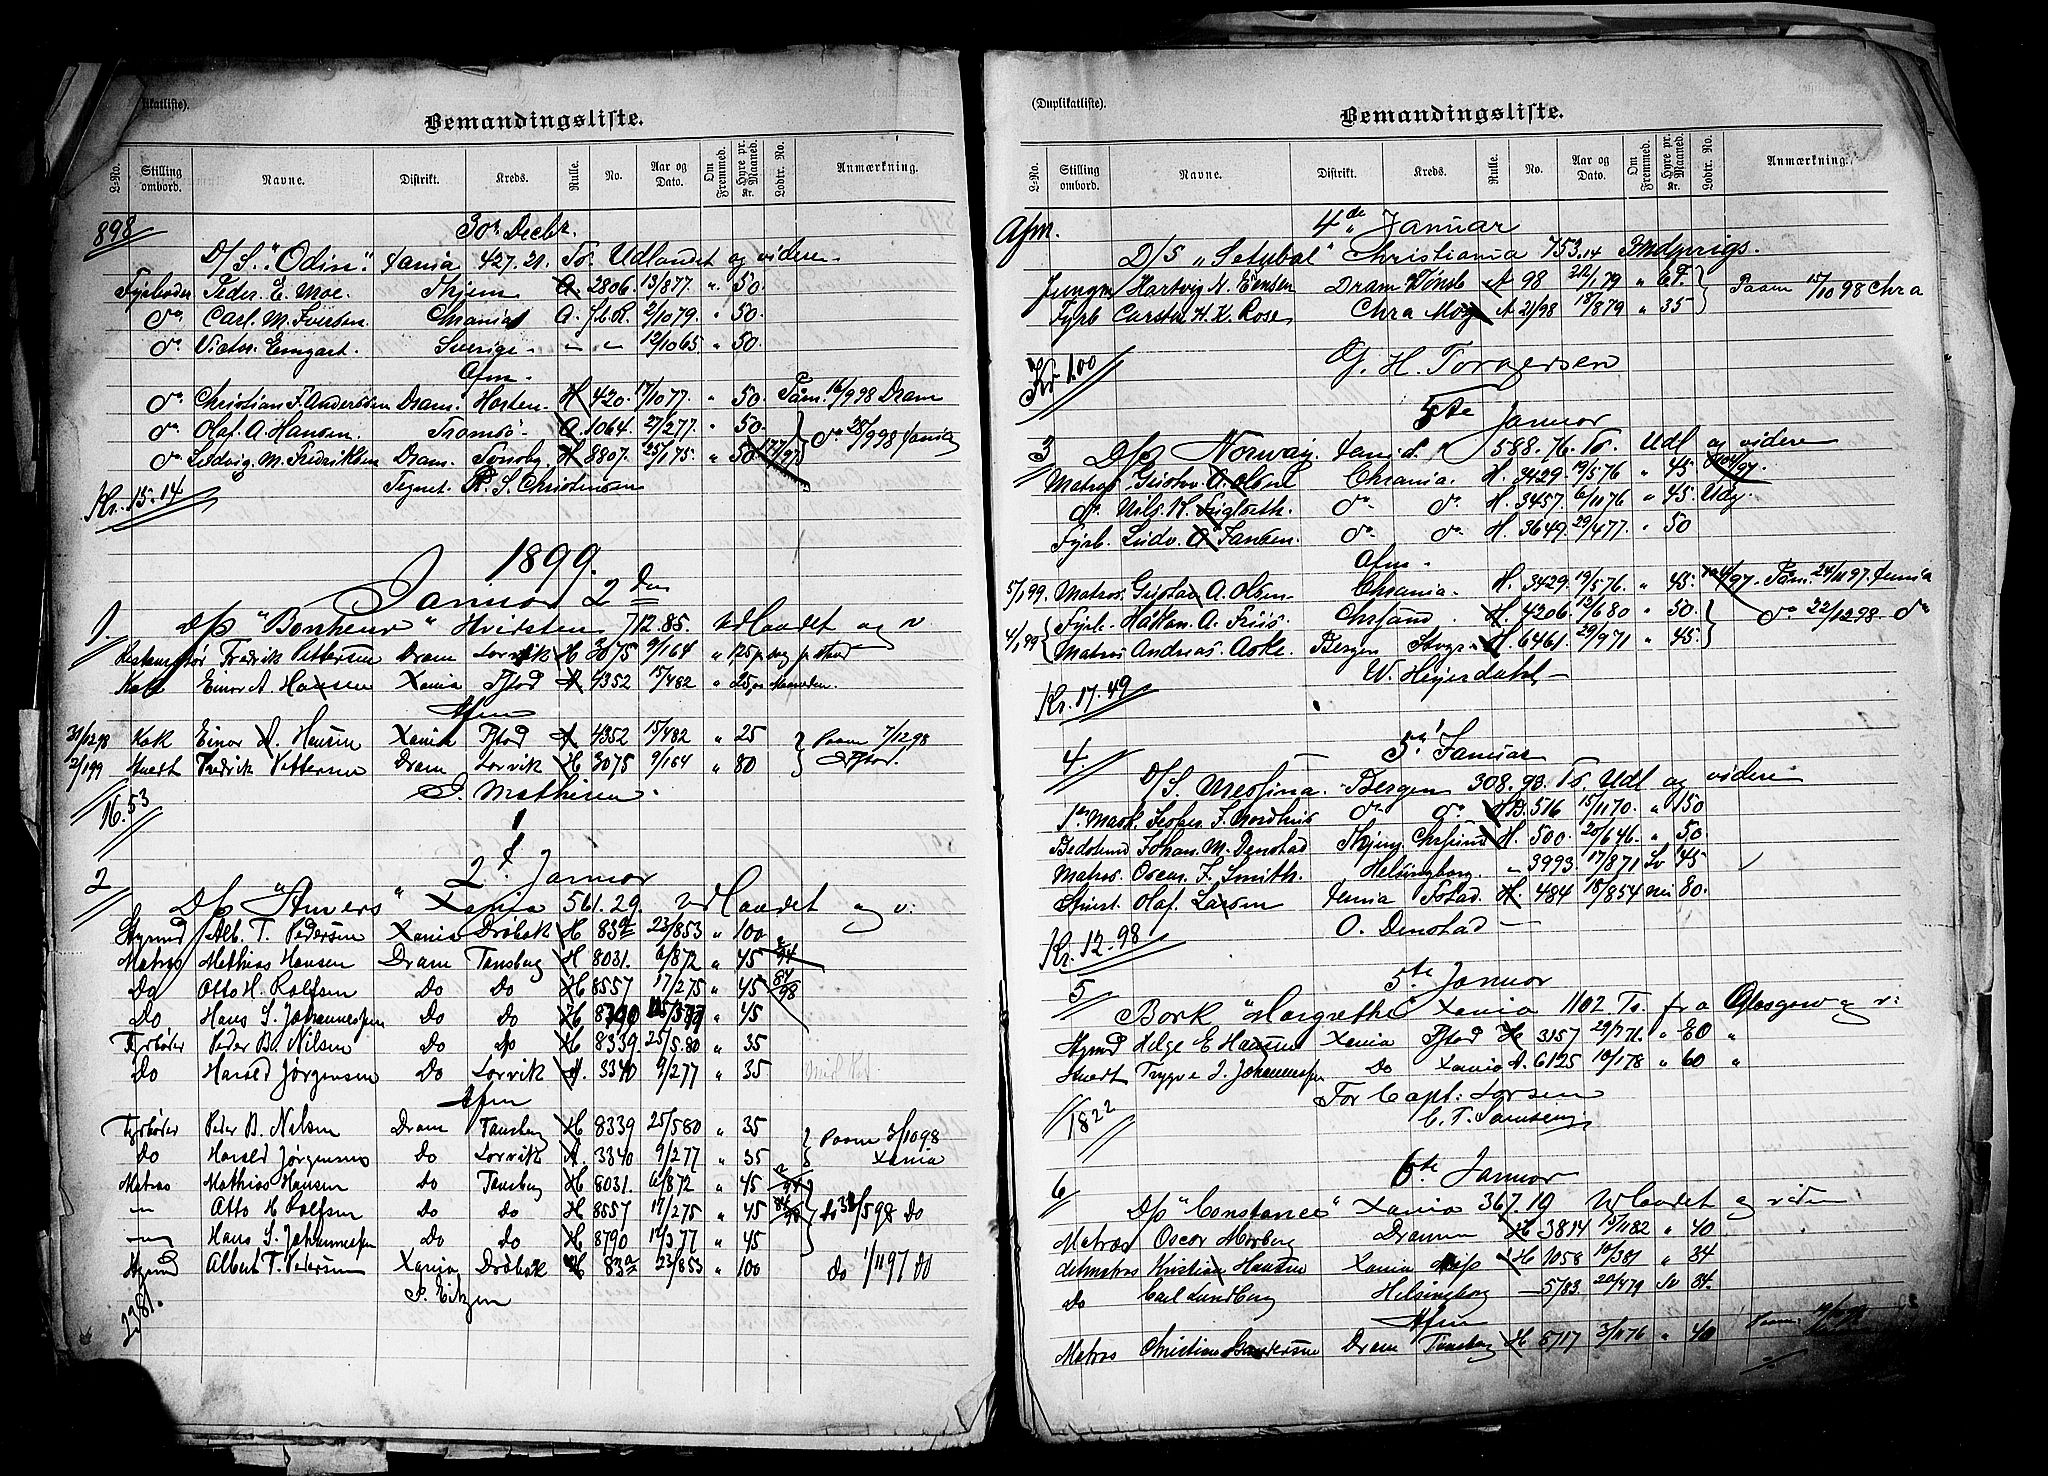 (Duplikatliste).
Bemandingsliste.
L-No. Stilling ombord. Navne. Distrikt. Kreds. Rulle. No. Aar og Dato. Om Fremmed. Hyre pr. Maaned. Kr. Lodtr. No. Anmærkning.
898 30 Decbr.
D/S. "Odin" Xania 427.21. To. Udlandet og videre
Fyrbøder Peder E. Moe. Thjem A. 2806. 13/877 " 50.
do Carl. M. Iversen. Chrania A. fbR. 2/1079. " 50.
do Victor Sverige - " - 12/1065 " 50.
Afm.
do Christian F. Andersen Dram. Horten. H 420. 17/1077. " 50. Paam. 16/998 Dram
do Olaf. A. Hansen. Tromsö A. 1064. 27/277. " 50. do 28/998 Xania
do Ludvig. M. Fredriksen Dram. Tönsbg H 8807. 25/175. " 50 177/97
Segnet. R. S. Christensen
Kr. 15.14
1899.
Januar 2den
1. D/S "Bonheur" Hvidsten 712.85. Udlandet og v
Fredrik Pettersen Dram Lorvik H 3075 9/164 " 125 p dag p Stued
Kok Einar A Hansen Xania Fstad A 4352 15/482 " 25 pr Maaneden.
Afm
31/1298 Kok Einar A. Hansen Xania Fstad A 4352 15/482 " 25 Paam 7/1298
2/199 Stuert Fredrik Pettersen Dram Lorvik H 3075 9/164 " 80 Fstad.
J. Mathisen
16.53
2 2d Januar
D/S "Anvers" Xania 561.29. udlandet og v:
Styrmd Alb. T. Pedersen Xania Drøbak H 83a 23/853 " 100
Matros Mathias Hansen Dram Tønsberg H 8031. 6/872 " 45
Do Otto H. Rolfsen Do Do H 8557 17/275 " 45 84/98
Do Hans S. Johannessen Do Do H 8790 " 45
Fyrbøder Peder B. Nilsen Do Do H 8339 25/580 " 35
Do Harald Jørgensen Do Lorvik A. 3340 9/277 " 35
Afm
Fyrbøder Peder B. Nilsen Dram Tønsberg H 8339 25/580 " 35 Paam 3/1098
Do Harald Jørgensen Do Lorvik A. 3340 9/277 " 35 Xania
Matros Mathias Hansen Do Tønsberg H 8031. 6/872 " 45
" Otto H Rolfsen Do Do H 8557 17/275 " 45 Do 31/598 Do
" Hans S. Johannessen Do Do H 8790 " 45
Styrmd Albert T. Pedersen Xania Drøbak H 83a 23/853 " 100 Do 1/1197 Do
P. Eitzen
2981.
(Duplikatliste).
Bemandingsliste.
L-No. Stilling ombord. Navne. Distrikt. Kreds. Rulle. No. Aar og Dato. Om Fremmed. Hyre pr. Maaned. Kr. Lodtr. No. Anmærkning.
Afm. 4de Januar
D/S "Setubal" Christiania 753.14 Indenrigs.
Jungm Hartvig N. Dram A 98 22/179 " Paam 15/1098 Chra
Fyrb Carsten H. K. Rose Chra A 21/98 18/879 " 35
Kr 1.00 G. H. Torgersen
5te Januar
3 D/S Norway. 588.76. To. Udl og videre
Matros Gustav A. Olsen Chrania. H. 3429 19/576 " 45
do Nils. K. do do H. 3457 6/1176 " 45. Udg.
Fyrb. Ludv. A Jansen. do do H. 3649. 29/477. " 50
Afm.
5/199. Matros Gustav A. Olsen Chrania. H. 3429 19/576. " 45. Paam. 24/1197. Xania
4/199 Fyrb. Håkon. A. Friis. Chrsand H 4206 12/680 " 50. do 22/1298. do
Matros Andreas. Aske. Bergen Stvgr H. 6461. 29/971 " 45.
W. Heyerdahl
Kr. 17.49
5te Januar
4. D/S. Messina. Bergen 308.90. To. Udl og videre
1ste Mask. Jesper. F. Nordhus do do B. 516 15/1170. " 150
Bedstmd Johan. M. Denstad Thjem Chrsund H. 500. 20/646. " 50.
Matros. Oscar. F. Smith. Helsingborg. " 3993 17/871 Sv 45
Stuert Olaf Larsen Xania Fstad. H. 484 18/854 nei 80.
O. Denstad
Kr. 12.98
5te Januar
5 Bark "Margrethe" Xania 1102 Ts. fra Glasgow og v:
Styrmd Helge E Hansen Xania Fstad H 3157 29/771. " 80 "
Stuert Trygve J. Johannessen Do Xania A. 6125 10/178 " 60 "
For Capt: Larsen
1822 C. T.
6te Januar
6 D/S "Constance" Xania 367.19 Udlandet og viden
Matros Oscar Moberg Dramm H 3814 13/1182 " 40
Letmatros Kristian Hansen Xania H 1058 10/381 " 34
Do Carl Lundberg Helsingborg 5/83. 20/479 Sv 34.
Afm
Matros Christian Andersen Dram Tønsberg H 8717 3/1176 " 40 Paam.